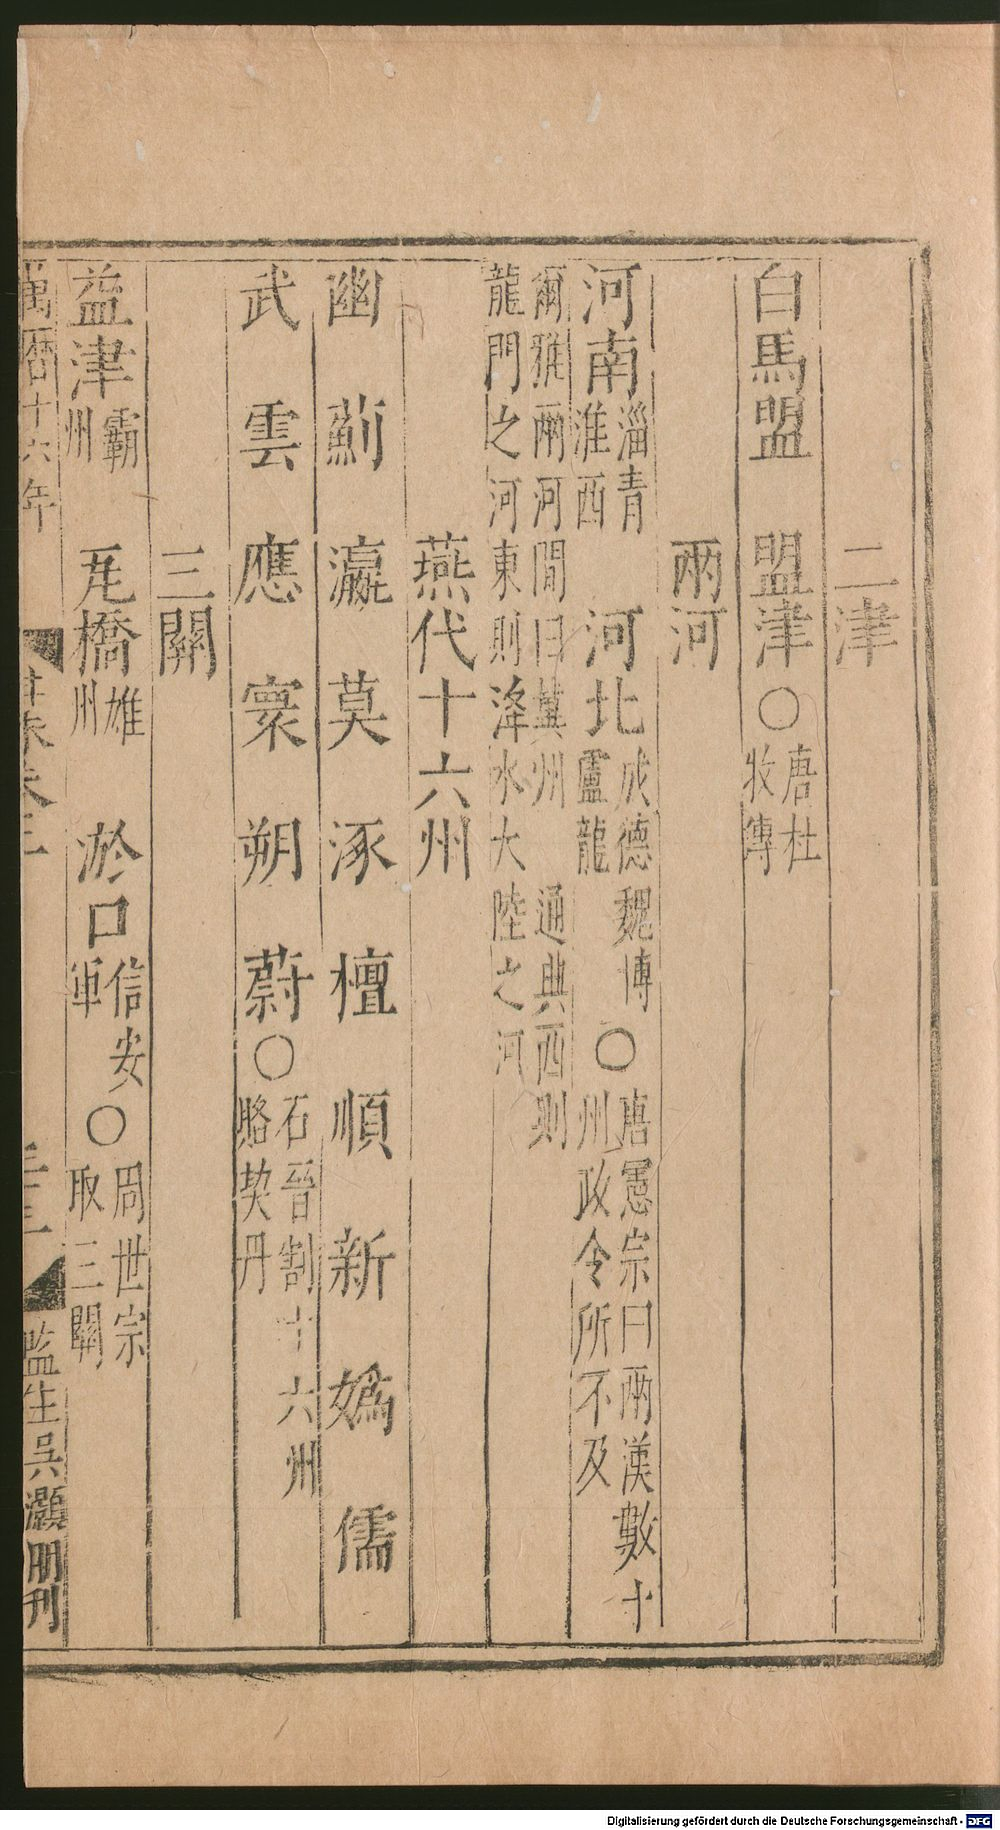 二津
白馬盟　盟津〇唐杜牧傳
兩河
河南淄青淮西　河北成德魏博盧龍〇唐憲宗曰兩漢數十州政令所不及
爾雅兩河間曰冀州　通典西則
龍門之河東則洚水大陸之河
燕代十六州
幽　薊　瀛　莫　涿　檀　順　新　媯　儒
武　雲　應　寰　朔　蔚〇石晉割十六州賂契丹
三關
益津霸州　瓦橋雄州　淤口信安軍〇周世宗取三關
萬曆十六年　卷　監生吳灝朋刊
Digitalisierung gefördert durch die Deutsche Forschungsgemeinschaft - DFG